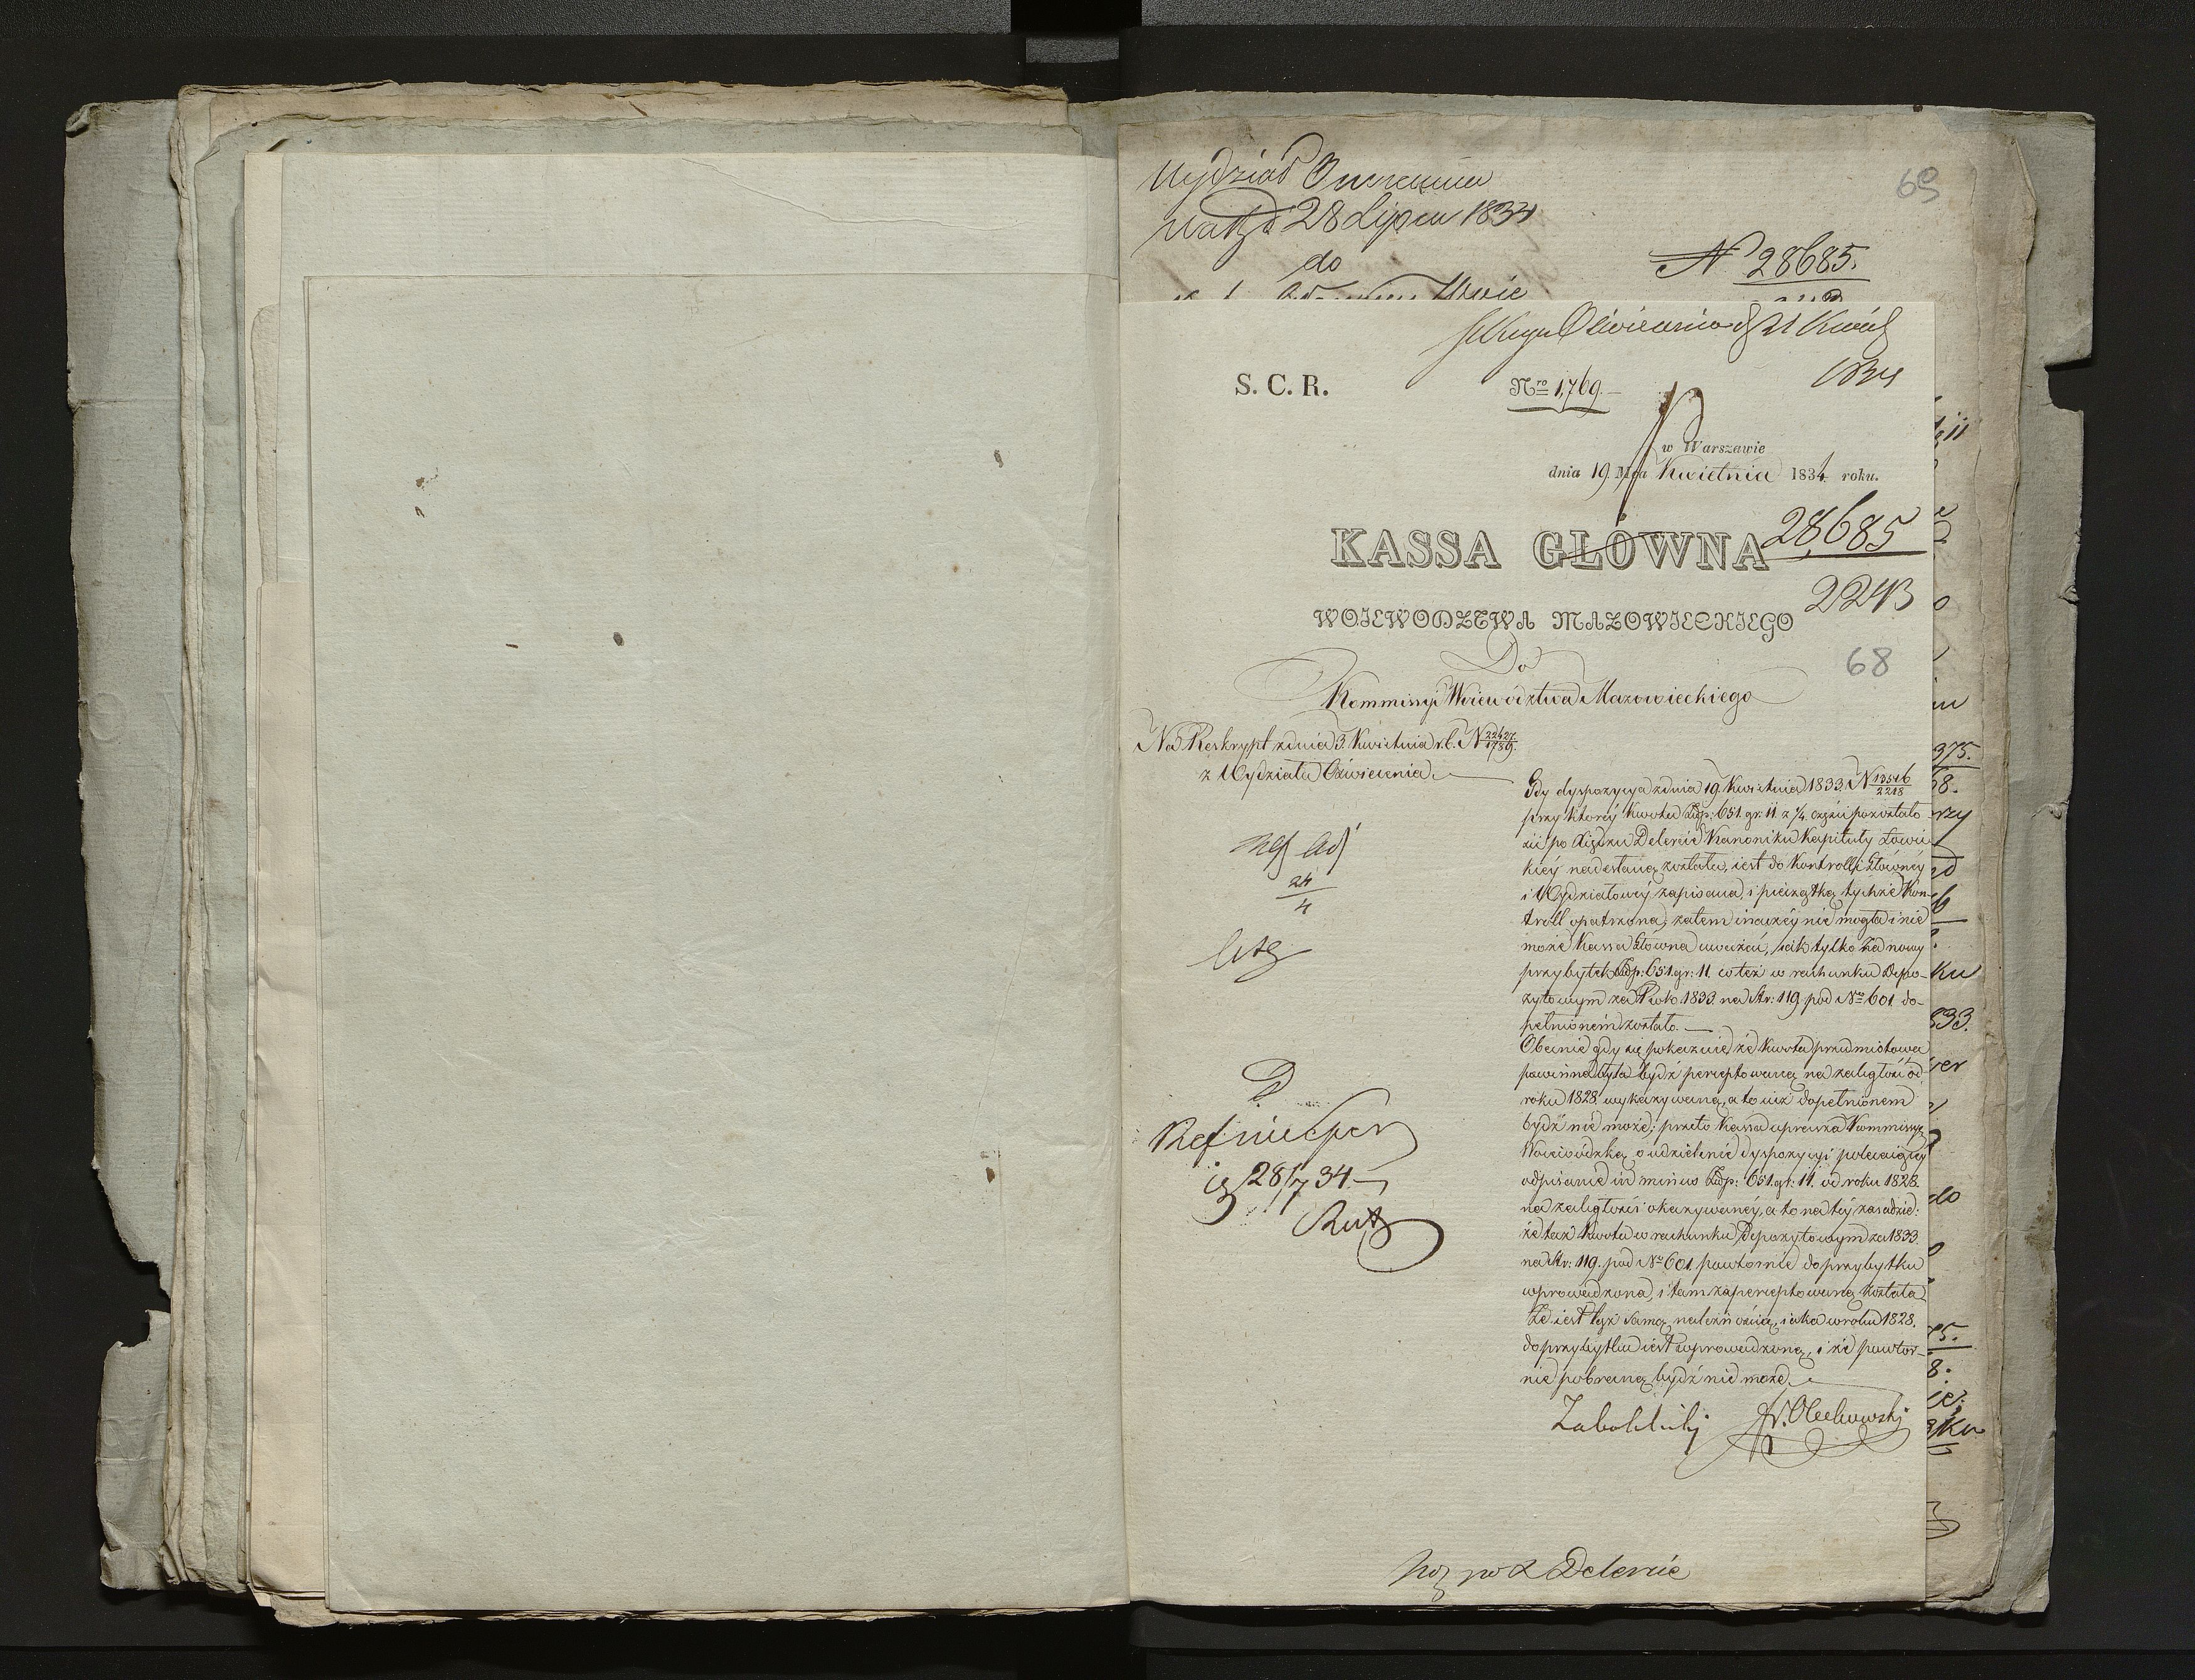 Wydział Oświecenia
28 Lipca 1834
do
69
N 28685.
Oświecenia d 21 Kwiet
1834
S. C. R.
Nro 1,769.
w Warszawie
dnia 19 Mca Kwietnia 1834 roku.
KASSA GŁÓWNA
28,685
2243
WOIEWODZTWA MAZOWIECKIEGO
68
Do
Kommissyi Woiewództwa Mazowieckiego
Na Reskrypt z dnia 3. Kwietnia r. b. N 22427/1789.
z Wydziału Oświecenia.
Gdy dyspozycya z dnia 19. Kwietnia 1833. N 13516/2218
przy któréy kwota Złp: 651. gr: 11 z 1/4 części pozostało
ści po Xiędzu Delercie Kanoniku Kapituły Łowic
kiéy nadesłaną została, iest do Kontrolli Głównéy
i Wydziałowéy zapisana, i pieczątką tychże Kon-
troll opatrzona, zatem inaczéy nie mogła i nie
może Kassa Główna uważać, iak tylko za nowy
przybytek Złp: 651. gr: 11. co też w rachunku Depo-
zytowym za Rok 1833. na Str: 119. pod Nro 601. do-
pełnioném zostało.
Obecnie gdy się pokazuie że kwota przedmiotowa
powinna była bydź perceptowaną na zaległość od
roku 1828. wykazywaną, a to iuż dopełnionem
bydź nie może; przeto Kassa uprasza Kommissyą
Woiewódzką o udzielenie dyspozycyi polecaiącéy
odpisanie in minus Złp: 651. gr: 11. od roku 1828.
na zaległości okazywanéy, a to na téy zasadzie:
że taż kwota w rachunku Depozytowym za 1833.
na Str: 119. pod Nro 601. powtórnie do przybytku
wprowadzona, i tam zaperceptowaną została.
Że iest tąż samą należnością, iaka w roku 1828.
do przybytku iest wprowadzoną, i że powtór-
nie pobraną bydź nie może.
24/4
28/7 34
W. Olechowski
po X Delercie